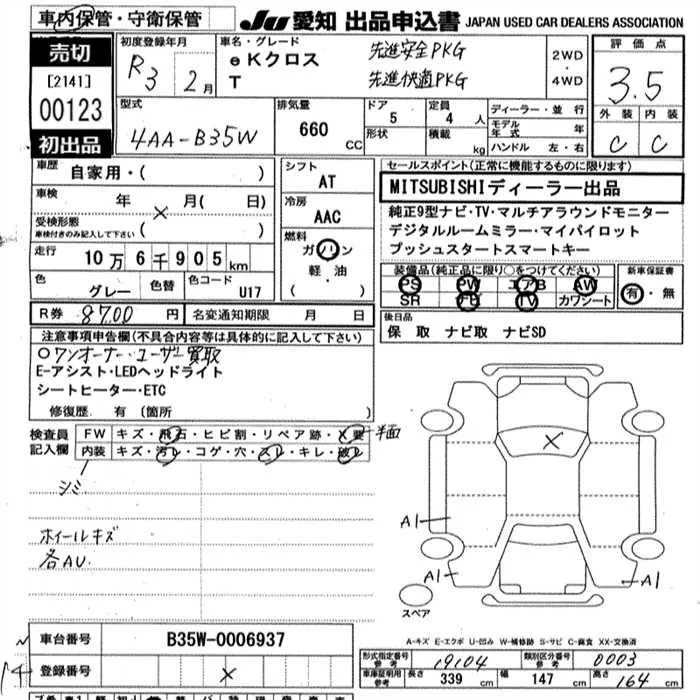 車内保管・守衛保管
JU 愛知 出品申込書 JAPAN USED CAR DEALERS ASSOCIATION
売切
[2141]
00123
初出品
初度登録年月
R3 2月
車名・グレード
eKクロス
T
先進安全PKG
先進快適PKG
2WD
・
4WD
評価点
3.5
外装 内装
C C
型式
4AA-B35W
排気量
660 CC
ドア
5
形状
定員
4人
積載
kg
ディーラー・並行
モデル年式 年
ハンドル 左・右
車歴 自家用・( )
車検 年 ×月( 日)
受検形態
車検付きのみ記入して下さい ( )
走行 10万6千905km
色 グレー 色替 色コード U17
シフト
AT
冷房
AAC
燃料
ガソリン
・
軽・油
( )
セールスポイント(正常に機能するものに限ります)
MITSUBISHIディーラー出品
純正9型ナビ・TV・マルチアラウンドモニター
デジタルルームミラー・マイパイロット
プッシュスタートスマートキー
装備品(純正品に限り○をつけてください)
PS PW エアB AW
SR TV カワシート
新車保証書
有・無
R券 8700円 名変通知期限 月 日
後日品
保 取 ナビ取 ナビSD
注意事項申告欄(不具合内容等は具体的に記入して下さい)
○ワンオーナー・ユーザー買取
E-アシスト・LEDヘッドライト
シートヒーター・ETC
修復歴 有 (箇所 )
検査員記入欄
FW キズ・飛石・ヒビ割・リペア跡・X要 半面
内装 キズ・汚レ・コゲ・穴・スレ・キレ・破レ
シミ
ホイールキズ
各AU
×
A1
A1
A1
スペア
A-キズ E-エクボ U-凹み W-補修跡 S-サビ C-腐食 XX-交換済
車台番号 B35W-0006937
登録番号 ×
形式指定番号 参考 19104 類別区分番号 参考 0003
車庫証明用 参考 長さ 339cm 幅 147cm 高さ 164cm